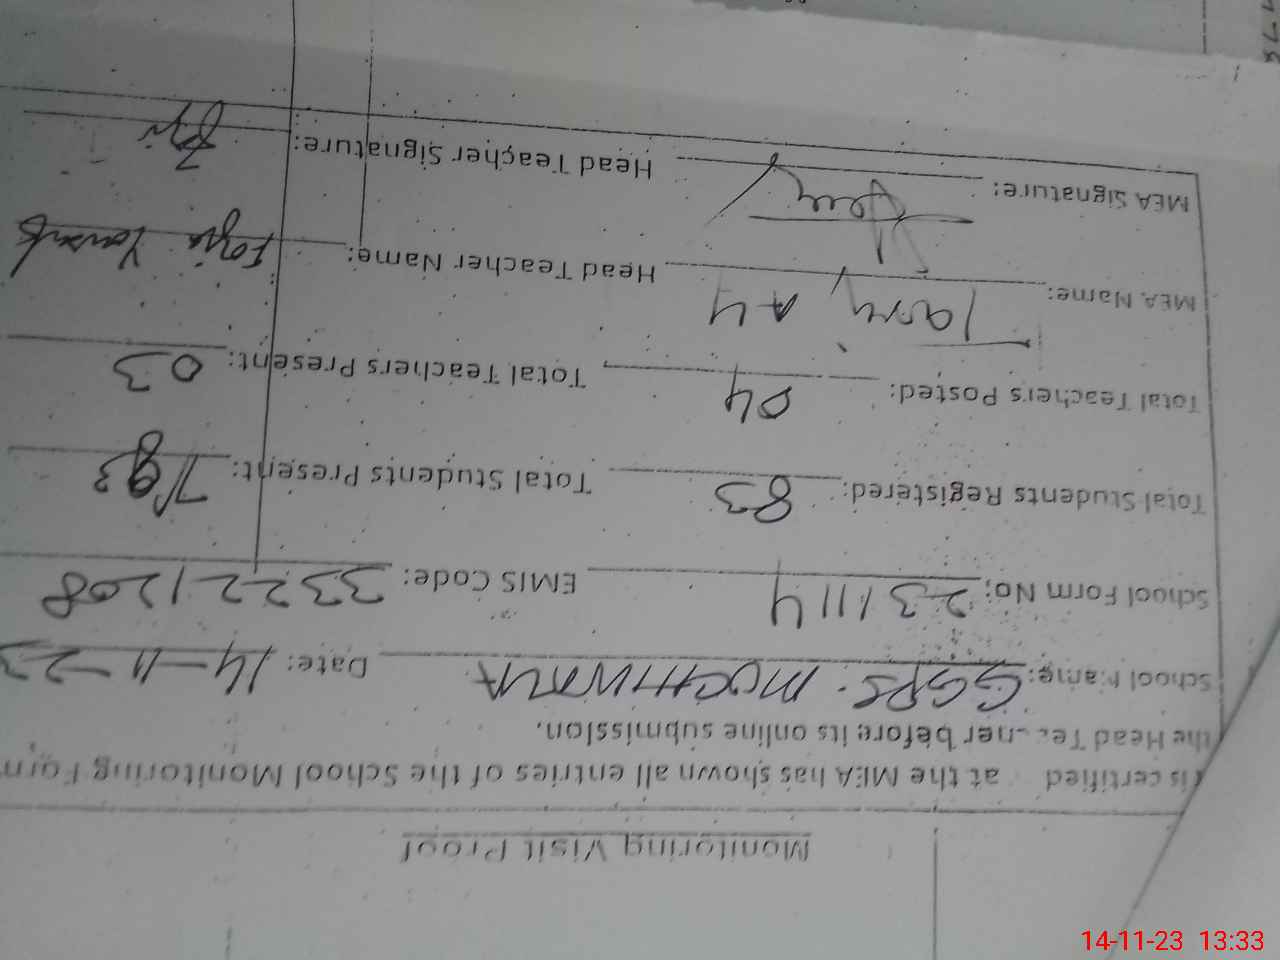 Monitoring Visit Proof
is certified at the MEA has shown all entries of the School Monitoring Form
the Head Teacher before its online submission.
School Name: GGPS. MOCHIWALA Date: 14-11-23
School Form No: 2311114 EMIS Code: 33221208
Total Students Registered: 83 Total Students Present:
Total Teachers Posted: 04 Total Teachers Present: 03
MEA Name: Tariq Head Teacher Name: Fozia
MEA Signature: Head Teacher Signature:
14-11-23 13:33